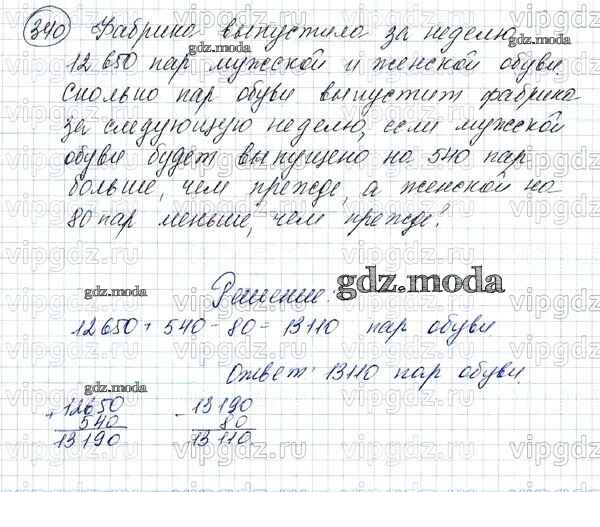 340 Фабрика выпустила за неделю
gdz.moda
12 650 пар мужской и женской обуви.
Сколько пар обуви выпустит фабрика
за следующую неделю, если мужской
обуви будет выпущено на 540 пар
больше, чем прежде, а женской на
80 пар меньше, чем прежде?
gdz.moda Решение: gdz.moda
12650 + 540 - 80 = 13110 пар обуви
Ответ: 13110 пар обуви.
gdz.moda gdz.moda
+ 12650 - 13190
540 80
13190 13110